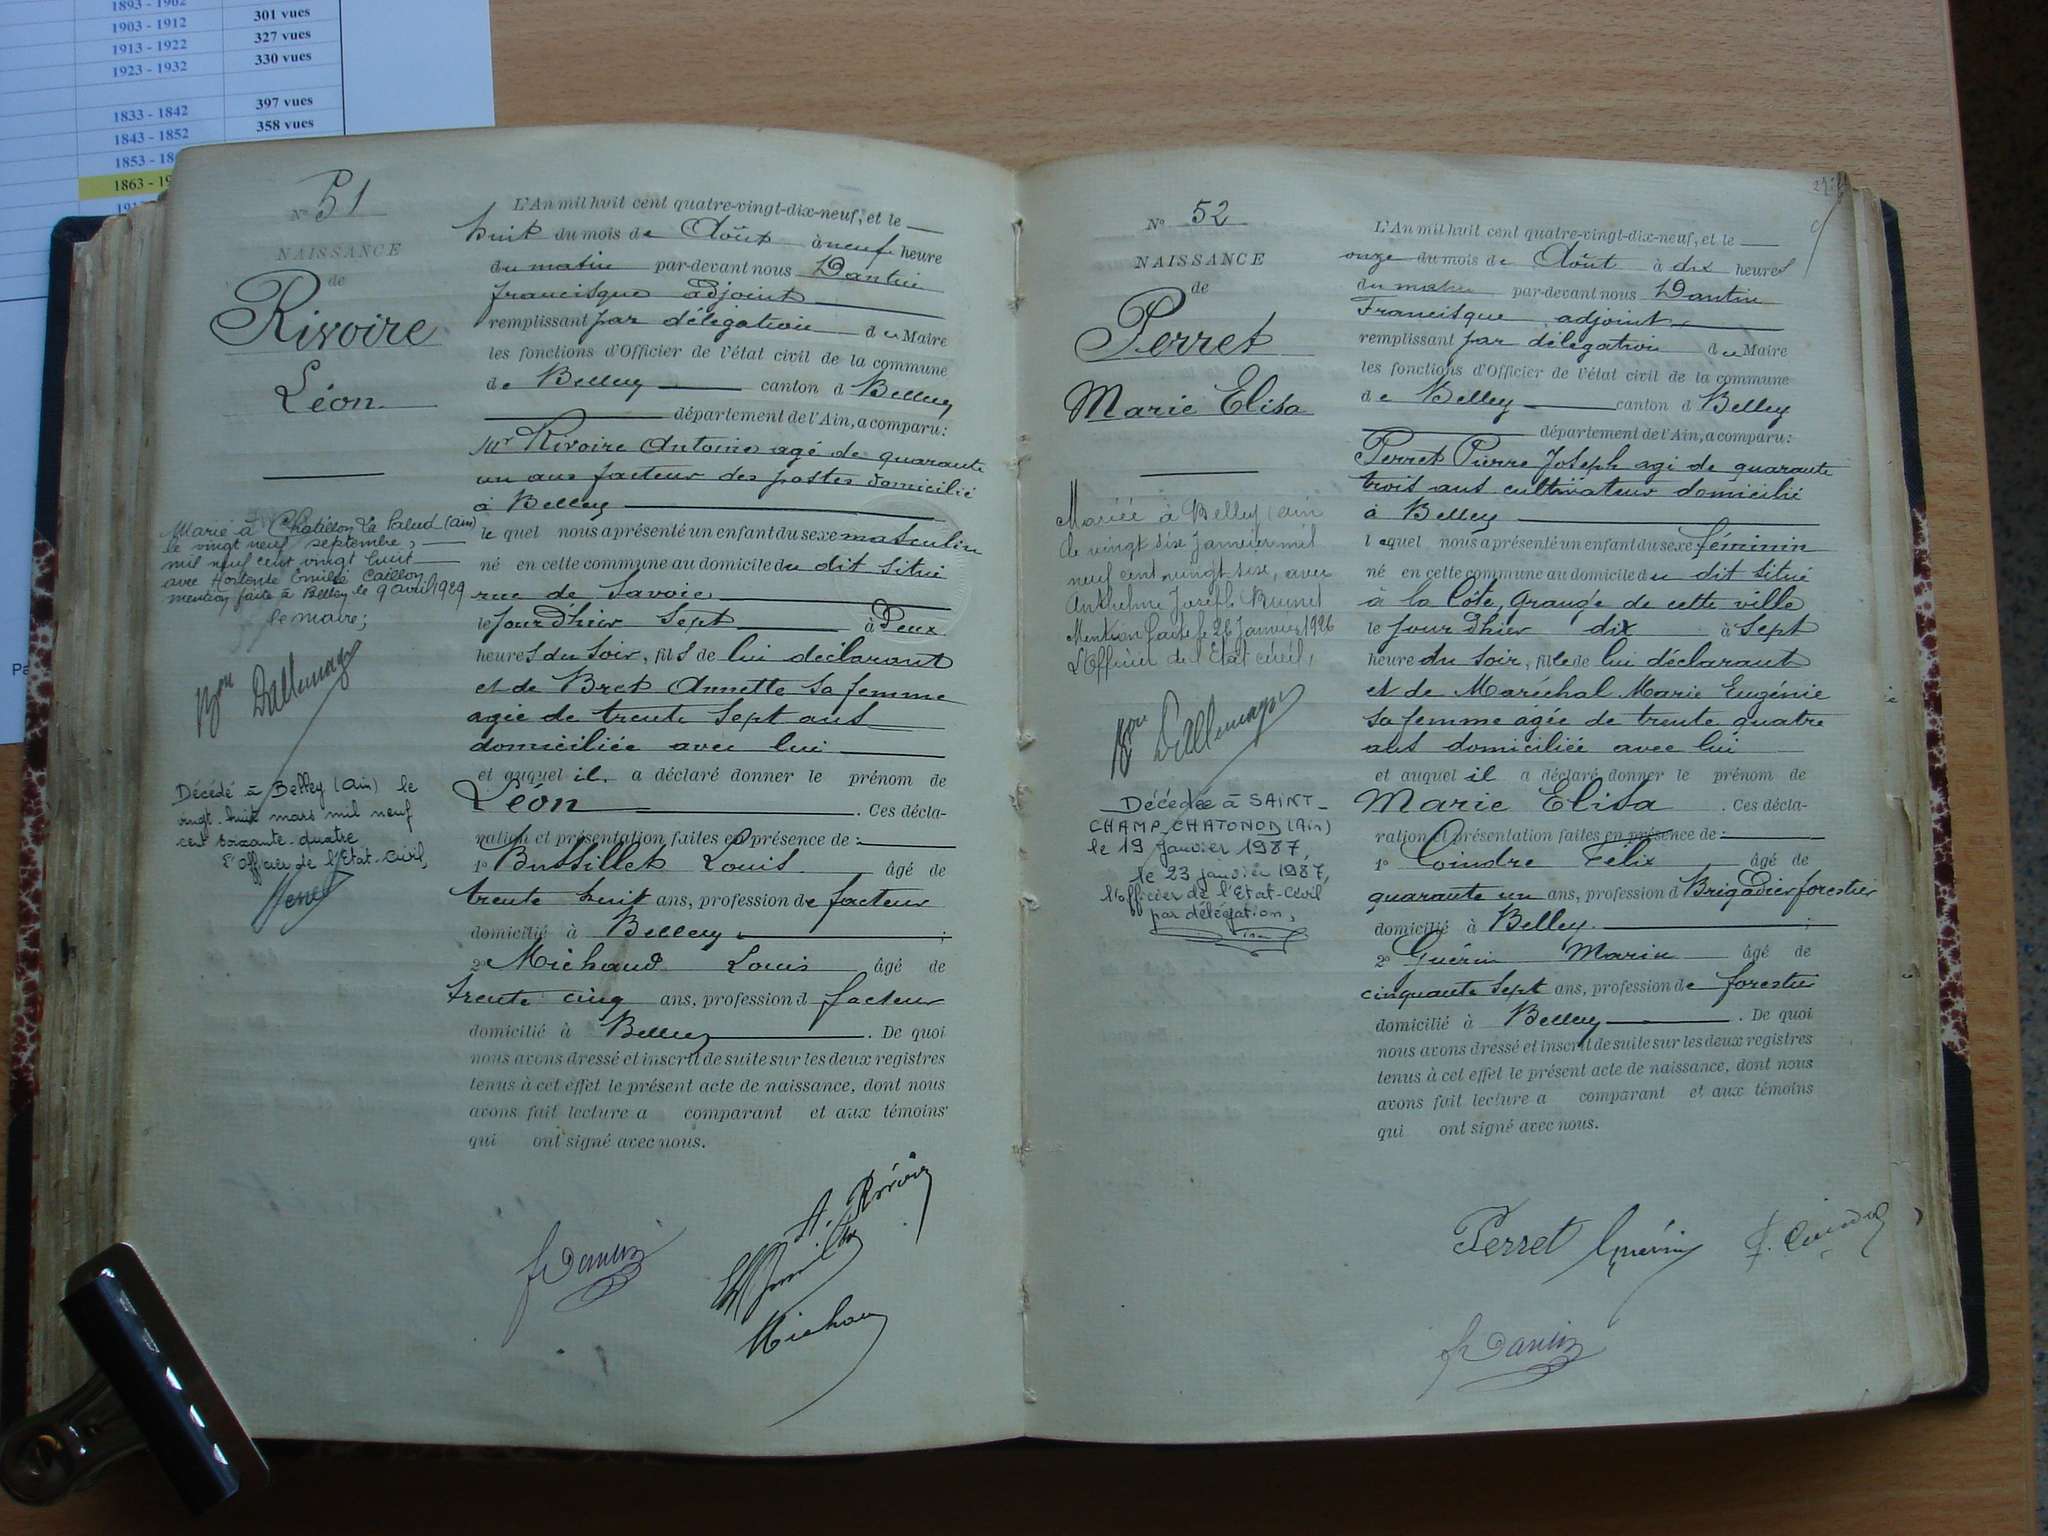 1893 - 1902
1903 - 1912 301 vues
1913 - 1922 327 vues
1923 - 1932 330 vues
1833 - 1842 397 vues
1843 - 1852 358 vues
1853 - 18
1863 - 19
Nº 51
NAISSANCE
de
Rivoire
Léon
Marié à Chatillon La Palud (Ain)
le vingt neuf septembre,
mil neuf cent vingt huit
avec Hortense Emilie Caillon
mention faite à Belley le 9 avril 1929
le maire,
Bon Dallemagne
Décédé à Belley (Ain) le
vingt-huit mars mil neuf
cent soixante-quatre
L'Officier de l'Etat-Civil,
L'An mil huit cent quatre-vingt-dix-neuf, et le
huit du mois de Août à neuf heure
du matin par-devant nous Dantin
francisque adjoint
remplissant par délégation du Maire
les fonctions d'Officier de l'état civil de la commune
de Belley canton d Belley
département de l'Ain, a comparu:
Mr Rivoire Antoine agé de quarante
un ans facteur des postes domicilié
à Belley
le quel nous a présenté un enfant du sexe masculin
né en cette commune au domicile du dit situé
rue de Savoie
le jour d'hier sept à Deux
heures du soir, fils de lui déclarant
et de Bret Annette sa femme
agée de trente sept ans
domiciliée avec lui
et auquel il a déclaré donner le prénom de
Léon . Ces décla-
ration et présentation faites en présence de :
1º Bussillet Louis âgé de
trente huit ans, profession de facteur
domicilié à Belley ;
2º Michaud Louis âgé de
trente cinq ans, profession d facteur
domicilié à Belley . De quoi
nous avons dressé et inscrit de suite sur les deux registres
tenus à cet effet le présent acte de naissance, dont nous
avons fait lecture a comparant et aux témoins
qui ont signé avec nous.
A. Rivoire
F Dantin
Michaud
Nº 52
NAISSANCE
de
Perret
Marie Elisa
Mariée à Belley (Ain
le vingt six janvier mil
neuf cent vingt six, avec
Anthelme Joseph Brunet
Mention faite le 26 Janvier 1926
L'Officier de l'Etat civil,
Bon Dallemagne
Décédée à SAINT-
CHAMP-CHATONOD (Ain)
le 19 janvier 1987,
le 23 janvier 1987,
l'officier de l'Etat-Civil
par délégation,
L'An mil huit cent quatre-vingt-dix-neuf, et le
onze du mois de Août à dix heures
du matin par-devant nous Dantin
Francisque adjoint
remplissant par délégation du Maire
les fonctions d'Officier de l'état civil de la commune
de Belley canton d Belley
département de l'Ain, a comparu:
Perret Pierre Joseph agé de quarante
trois ans cultivateur domicilié
à Belley
lequel nous a présenté un enfant du sexe féminin
né en cette commune au domicile du dit situé
à la Côte, Grange de cette ville
le jour d'hier dix à sept
heure du soir, fille de lui déclarant
et de Maréchal Marie Eugénie
sa femme agée de trente quatre
ans domiciliée avec lui
et auquel il a déclaré donner le prénom de
Marie Elisa . Ces décla-
ration et présentation faites en présence de :
1º Coindre Felix âgé de
quarante un ans, profession d Brigadier forestier
domicilié à Belley ;
2º Guérin Marin âgé de
cinquante sept ans, profession de forestier
domicilié à Belley . De quoi
nous avons dressé et inscrit de suite sur les deux registres
tenus à cet effet le présent acte de naissance, dont nous
avons fait lecture a comparant et aux témoins
qui ont signé avec nous.
Perret Guérin F. Coindre
F Dantin